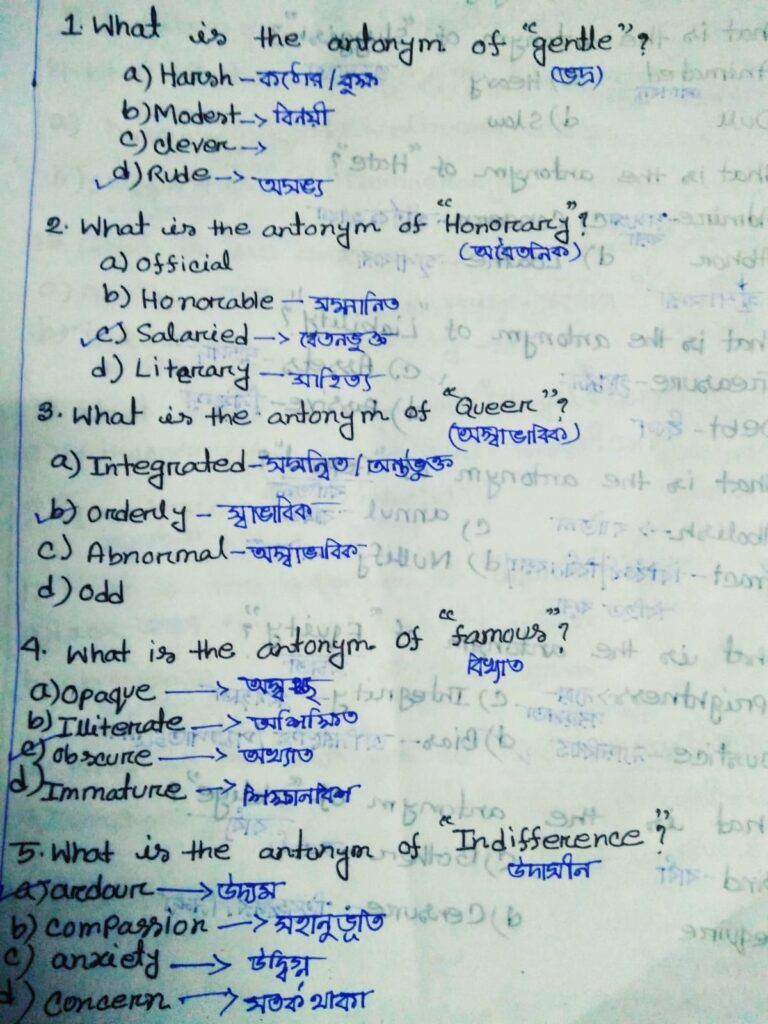 1. What is the antonym of "gentle"?
(ভদ্র)
a) Harsh - কঠোর / রুক্ষ
b) Modest -> বিনয়ী
c) clever ->
✓d) Rude -> অসভ্য
2. What is the antonym of "Honorary"?
(অবৈতনিক)
a) official
b) Honorable - সম্মানিত
✓c) Salaried -> বেতনভুক্ত
d) Literary - সাহিত্য
3. What is the antonym of "Queer"?
(অস্বাভাবিক)
a) Integrated - সমন্বিত / অন্তর্ভুক্ত
✓b) orderly - স্বাভাবিক
c) Abnormal - অস্বাভাবিক
d) odd
4. What is the antonym of "famous"?
বিখ্যাত
a) opaque -> অস্বচ্ছ
b) Illiterate -> অশিক্ষিত
✓c) obscure -> অখ্যাত
d) Immature -> শিক্ষানবিশ
5. What is the antonym of "Indifference"?
উদাসীন
✓a) ardour -> উদ্যম
b) compassion -> সহানুভূতি
c) anxiety -> উদ্বিগ্ন
d) concern -> সতর্ক থাকা